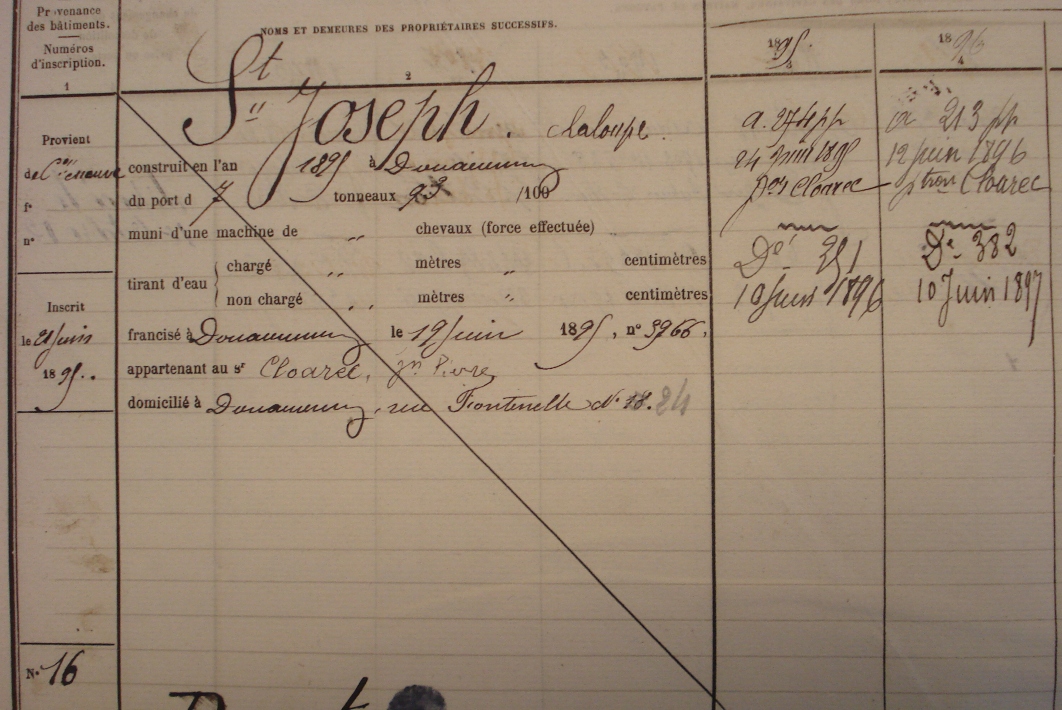 Provenance
des bâtiments.
Numéros
d'inscription.
1
NOMS ET DEMEURES DES PROPRIÉTAIRES SUCCESSIFS.
2
1895.
3
1896
4
St Joseph. chaloupe.
Provient
de
fo
no
construit en l'an 1895 à Douarnenez
du port d 7 tonneaux 93 /100
muni d'une machine de " chevaux (force effectuée) "
tirant d'eau
chargé " mètres " centimètres
non chargé " mètres " centimètres
Inscrit
le 21 Juin
1895..
francisé à Douarnenez le 19 Juin 1895, no 3966,
appartenant au sr Cloarec, Jn Pierre
domicilié à Douarnenez, rue Fontenelle No 18. 24
No 16
a. 274 pp
24 Juin 1895
Pon Cloarec
Dé 351
10 Juin 1896
a 213 pp
12 Juin 1896
ptron Cloarec
Dé 382
10 Juin 1897